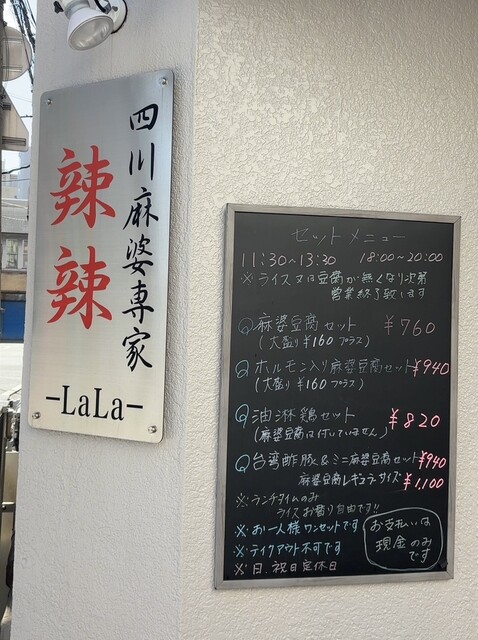 四川麻婆専家
辣辣
-LaLa-
セットメニュー
11:30~13:30 18:00~20:00
※ライス又は豆腐が無くなり次第
営業終了致します
麻婆豆腐セット ¥760
(大盛り¥160プラス)
ホルモン入り麻婆豆腐セット ¥940
(大盛り¥160プラス)
油淋鶏セット ¥820
(麻婆豆腐は付いていません)
台湾酢豚&ミニ麻婆豆腐セット ¥940
麻婆豆腐レギュラーサイズ ¥1,100
※ランチタイムのみ
ライスお替り自由です!!
※お一人様ワンセットです
※テイクアウト不可です
※日、祝日定休日
お支払いは
現金のみ
です